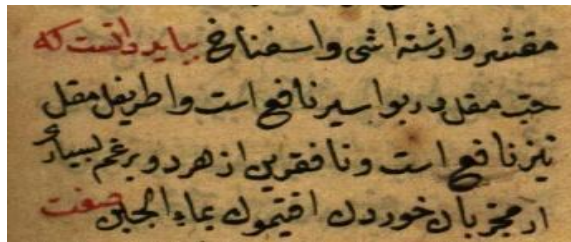 مقشر وارشته اشی واسفناخ بباید دانست که
حب مقل در بواسیر نافع است واطریفل مقل
نیز نافع است و نافترین از هر دو برغم بسیار
از مجربان خوردن افتیمون بماء الجبن صفت